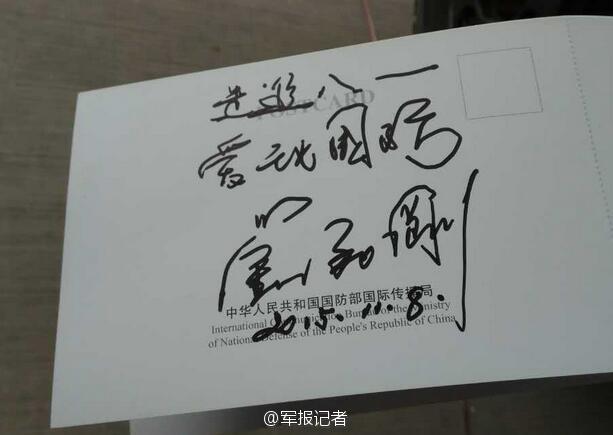 八一
POSTCARD
爱我国防
中华人民共和国国防部国际传播局
International Communication Bureau of the Ministry
of National Defense of the People's Republic of China
2015.11.8.
@军报记者